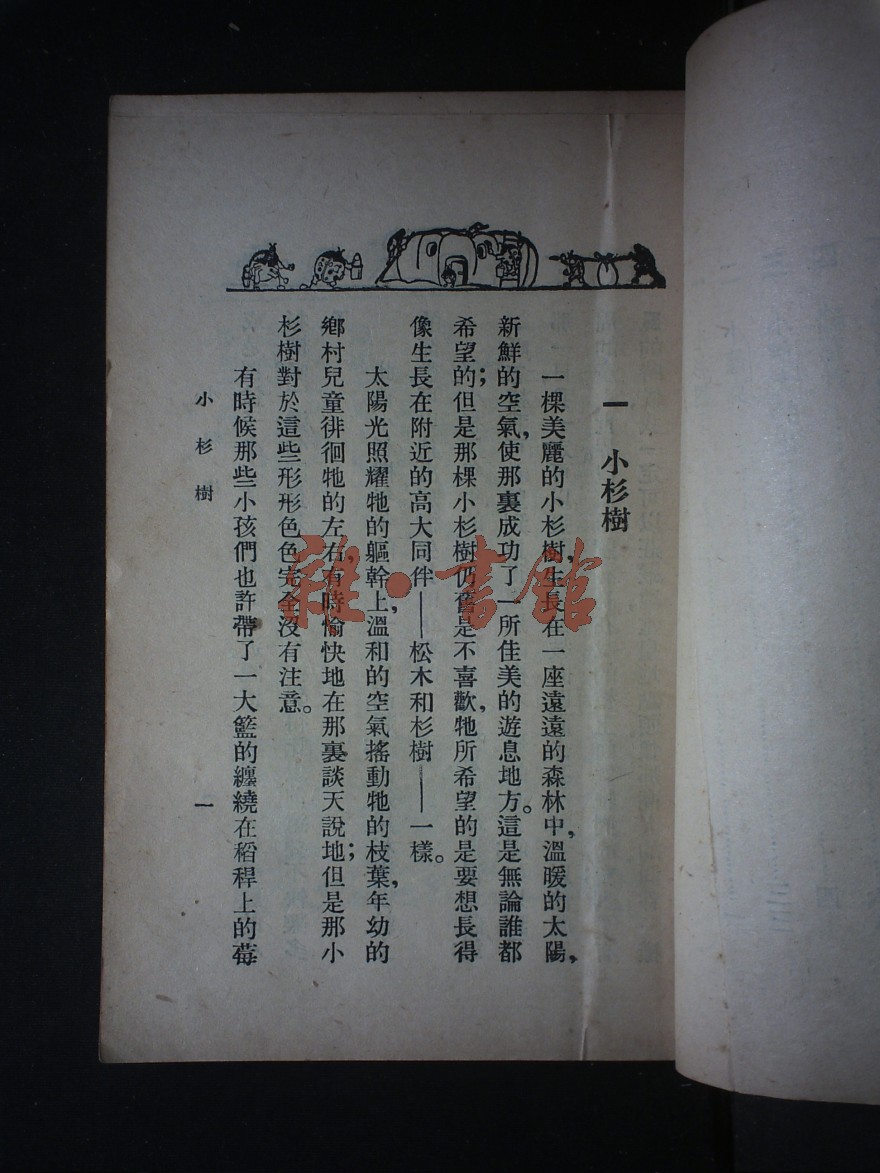 一 小杉樹
一棵美麗的小杉樹，生長在一座遠遠的森林中，溫暖的太陽，
新鮮的空氣，使那裏成功了一所佳美的遊息地方。這是無論誰都
希望的；但是那棵小杉樹仍舊是不喜歡，牠所希望的是要想長得
像生長在附近的高大同伴——松木和杉樹——一樣。
太陽光照耀牠的軀幹上，溫和的空氣搖動牠的枝葉，年幼的
鄉村兒童徘徊牠的左右，有時愉快地在那裏談天說地；但是那小
杉樹對於這些形形色色完全沒有注意。
有時候那些小孩們也許帶了一大籃的纏繞在稻稈上的莓
小杉樹
一
雜·書館